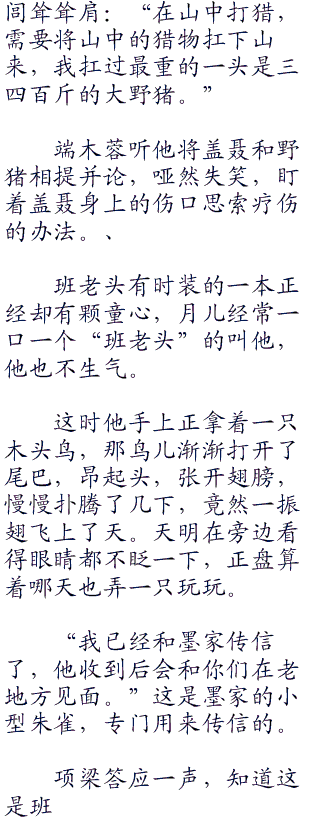 间耸耸肩：“在山中打猎，
需要将山中的猎物扛下山
来，我扛过最重的一头是三
四百斤的大野猪。”
端木蓉听他将盖聂和野
猪相提并论，哑然失笑，盯
着盖聂身上的伤口思索疗伤
的办法。、
班老头有时装的一本正
经却有颗童心，月儿经常一
口一个“班老头”的叫他，
他也不生气。
这时他手上正拿着一只
木头鸟，那鸟儿渐渐打开了
尾巴，昂起头，张开翅膀，
慢慢扑腾了几下，竟然一振
翅飞上了天。天明在旁边看
得眼睛都不眨一下，正盘算
着哪天也弄一只玩玩。
“我已经和墨家传信
了，他收到后会和你们在老
地方见面。”这是墨家的小
型朱雀，专门用来传信的。
项梁答应一声，知道这
是班